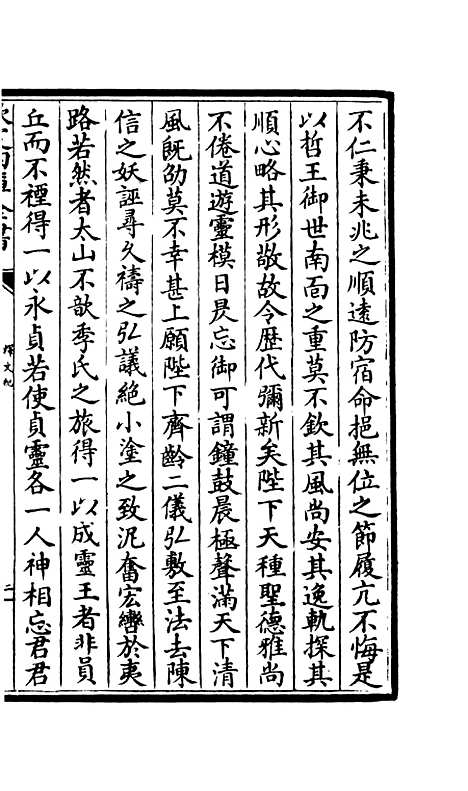 不仁秉未兆之順遠防宿命挹無位之節履亢不悔是
以哲王御世南面之重莫不欽其風尚安其逸軌探其
順心略其形敬故令歴代彌新矣陛下天種聖德雅尚
不倦道遊靈模日昃忘御可謂鐘鼓晨極聲滿天下清
風既劭莫不幸甚上願陛下齊齡二儀弘敷至法去陳
信之妖誣尋久禱之弘議絶小塗之致泥奮宏轡於夷
路若然者太山不歆季氏之旅得一以成靈王者非員
丘而不禋得一以永貞若使貞靈各一人神相忘君君
欽定四庫全書
釋文紀